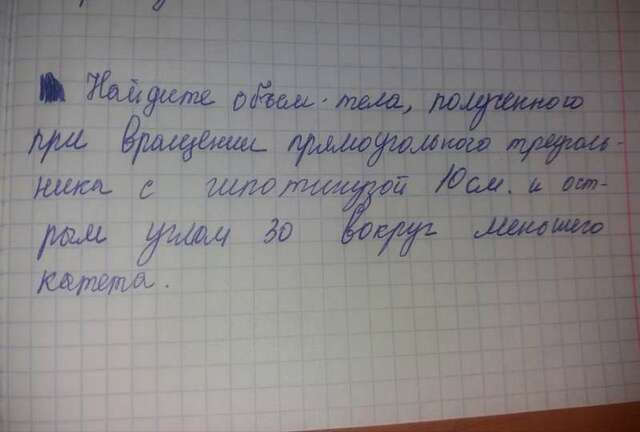 Найдите объем тела, полученного
при вращении прямоугольного треуголь-
ника с гипотинузой 10 см. и ост-
рым углом 30 вокруг меньшего
катета.